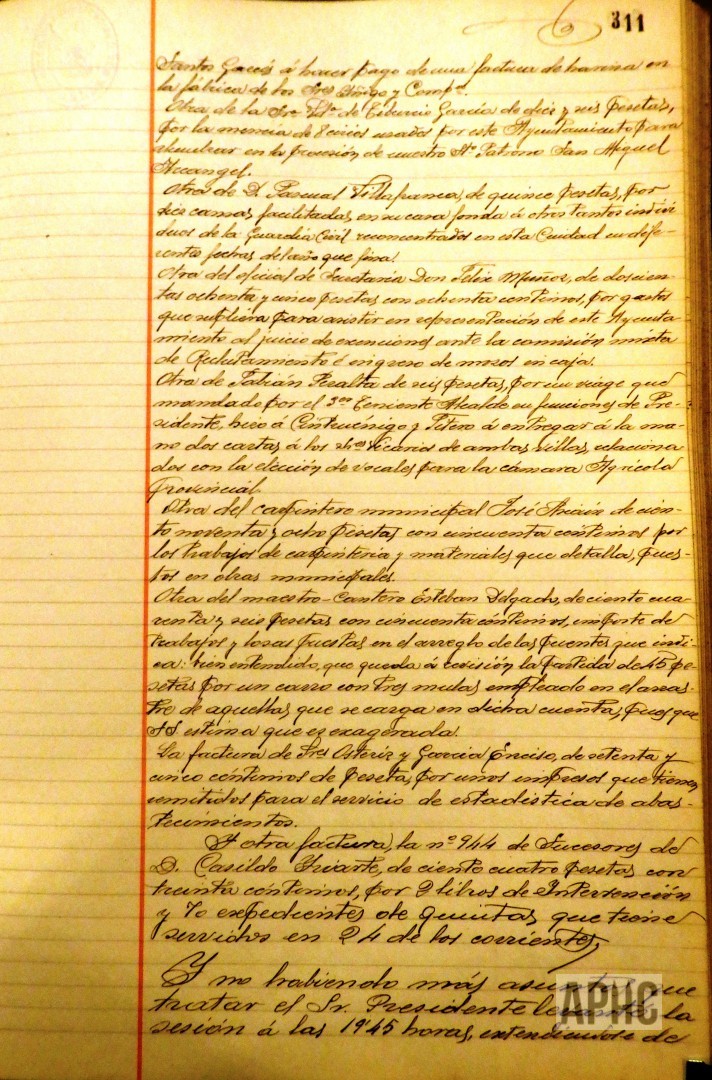 311
Santos Garcés á hacer pago de una factura de harina en
la fábrica de los Sres Iñigo y Compª.
Otra de la Sra Vdª de Tiburcio García de diez y seis pesetas,
por la merma de 8 cirios usados por este Ayuntamiento para
alumbrar en la procesión de nuestro Stº Patrono San Miguel
Arcangel.
Otra de D. Pascual Villafranca, de quince pesetas, por
seis camas facilitadas en su casa fonda á otros tantos indivi
duos de la Guardia Civil reconcentrados en esta Ciudad en dife-
rentes fechas del año que fina.
Otra del oficial de Secretaria Don Felix Muñoz, de doscien-
tas ochenta y cinco pesetas con ochenta centimos, por gastos
que supliera para asistir en representación de este Ayunta-
miento al juicio de exenciones ante la comisión mixta
de Reclutamiento é ingreso de mozos en caja.
Otra de Fabián Peralta de seis pesetas, por un viage que
mandado por el 3er Teniente Alcalde en funciones de Pre-
sidente, hizo á Cintruenigo y Fitero á entregar á la ma-
no dos cartas á los Sres Vicarios de ambas villas, relaciona
dos con la elección de vocales para la cámara Agricola
Provincial.
Otra del carpintero municipal José de cien-
to noventa y ocho pesetas con cincuenta centimos por
los trabajos de carpinteria y materiales que detalla, pues-
tos en obras municipales.
Otra del maestro-Cantero Esteban Delgado, de ciento cua-
renta y seis pesetas con cincuenta centimos, importe de
trabajos y losas puestas en el arreglo de los puentes que indi-
ca: bien entendido, que queda á revisión la partida de 45 pe-
setas por un carro con tres mulas empleado en el arras-
tre de aquellas que se carga en dicha cuenta, pues que
SS estima que es exagerada.
La factura de Sres Osteriz y Garcia Enciso, de setenta y
cinco centimos de peseta, por unos impresos que tienen
remitidos para el servicio de estadistica de abas-
tecimientos.
Y otra factura, la nº 944 de Sucesores de
D. Casildo Iriarte, de ciento cuatro pesetas con
treinta céntimos, por 2 libros de Intervención
y 70 expedientes de quintas que tiene
servidos en 24 de los corrientes.
Y no habiendo más asuntos que
tratar el Sr. Presidente levantó la
sesión á las 19'45 horas, extendiendose de
APHC